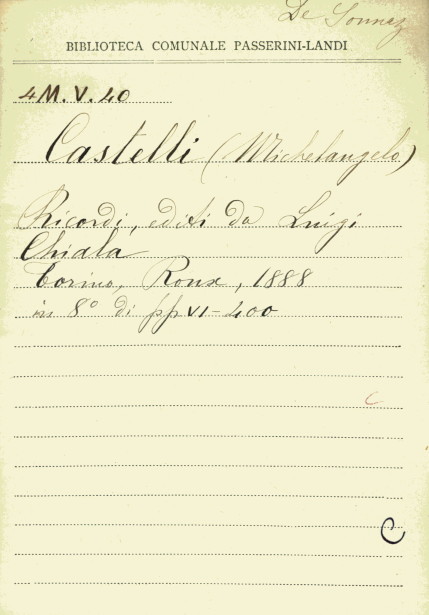 De Sonnaz
BIBLIOTECA COMUNALE PASSERINI-LANDI
4M.V.40
Castelli (Michelangelo)
Ricordi, editi da Luigi
Chiala
Torino, Roux, 1888
in 8° di pp VI-400
C
C